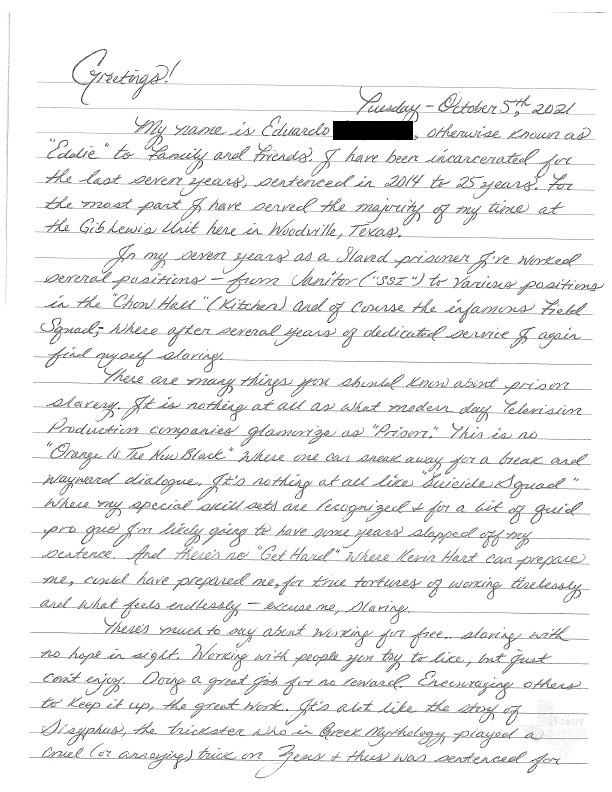 Greetings!
Tuesday - October 5th, 2021
My name is Eduardo , otherwise known as
"Eddie" to family and friends. I have been incarcerated for
the last seven years, sentenced in 2014 to 25 years. For
the most part I have served the majority of my time at
the Gib Lewis Unit here in Woodville, Texas.
In my seven years as a slaved prisoner I've worked
several positions - from Janitor ("SSI") to various positions
in the "Chow Hall" (kitchen) and of course the infamous Field
Squad,- where after several years of dedicated service I again
find myself slaving.
There are many things you should know about prison
slavery. It is nothing at all as what modern day Television
Production companies glamorize as "Prison." This is no
"Orange Is The New Black" where one can sneak away for a break and
wayward dialogue. It's nothing at all like "Suicide Squad"
where my special skill sets are recognized & for a bit of quid
pro quo I'm likely going to have some years slapped off my
sentence. And there's no "Get Hard" where Kevin Hart can prepare
me, could have prepared me, for true tortures of working tirelessly
and what feels endlessly - excuse me, slaving.
There's much to say about working for free.. slaving with
no hope in sight. Working with people you try to like, but just
can't enjoy. Doing a great job for no reward. Encouraging others
to keep it up, the great work. It's alot like the story of
Sisyphus, the trickster who in Greek Mythology, played a
cruel (or annoying) trick on Zeus & thus was sentenced for